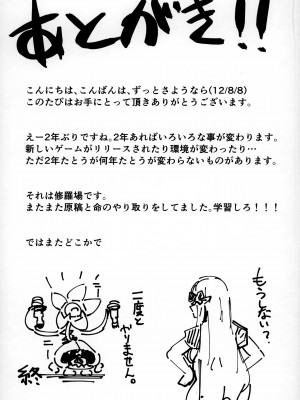 あとがき!!
こんにちは、こんばんは、ずっとさようなら(12/8/8)
このたびはお手にとって頂きありがとうございます。
えー2年ぶりですね。2年あればいろいろな事が変わります。
新しいゲームがリリースされたり環境が変わったり…
ただ2年たとうが何年たとうが変わらないものがあります。
それは修羅場です。
またまた原稿と命のやり取りをしてました。学習しろ！！！
ではまたどこかで
もうしない？
二度と
やりません。
終